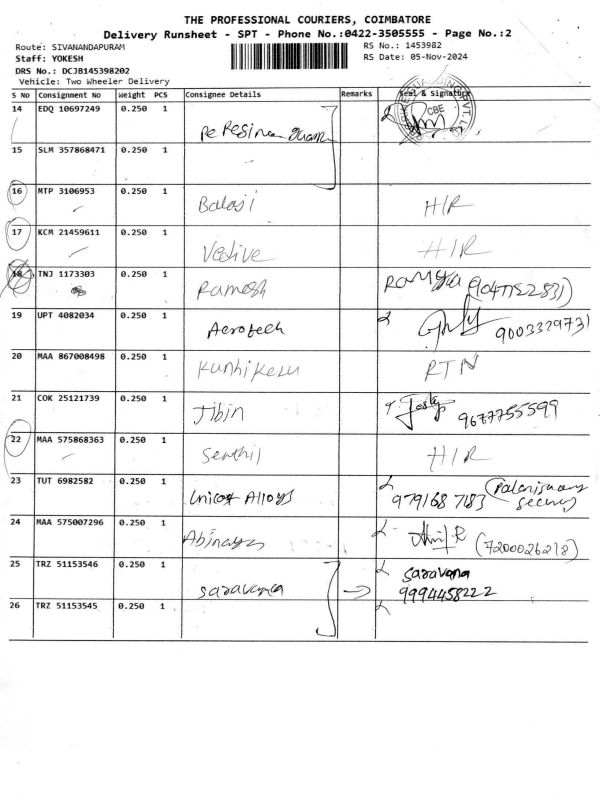 THE PROFESSIONAL COURIERS, COIMBATORE
Delivery Runsheet - SPT - Phone No.:0422-3505555 - Page No.:2
Route: SIVANANDAPURAM RS No.: 1453982
Staff: YOKESH RS Date: 05-Nov-2024
DRS No.: DCJB145398202
Vehicle: Two Wheeler Delivery
S No Consignment No Weight PCS Consignee Details Remarks Seal & Signature
14 EDQ 10697249 0.250 1 CBE
15 SLM 357868471 0.250 1
16 MTP 3106953 0.250 1 Balaji H/R
17 KCM 21459611 0.250 1 H/R
18 TNJ 1173303 0.250 1 Ramesh
19 UPT 4082034 0.250 1 Aerotech 9003329731
20 MAA 867008498 0.250 1 RTN
21 COK 25121739 0.250 1 Jibin 9677755599
22 MAA 575868363 0.250 1 Senthil H/R
23 TUT 6982582 0.250 1 Alloys 9791687183
24 MAA 575007296 0.250 1 Abinaya (7200026218)
25 TRZ 51153546 0.250 1 Saravana Saravana
9994458222
26 TRZ 51153545 0.250 1